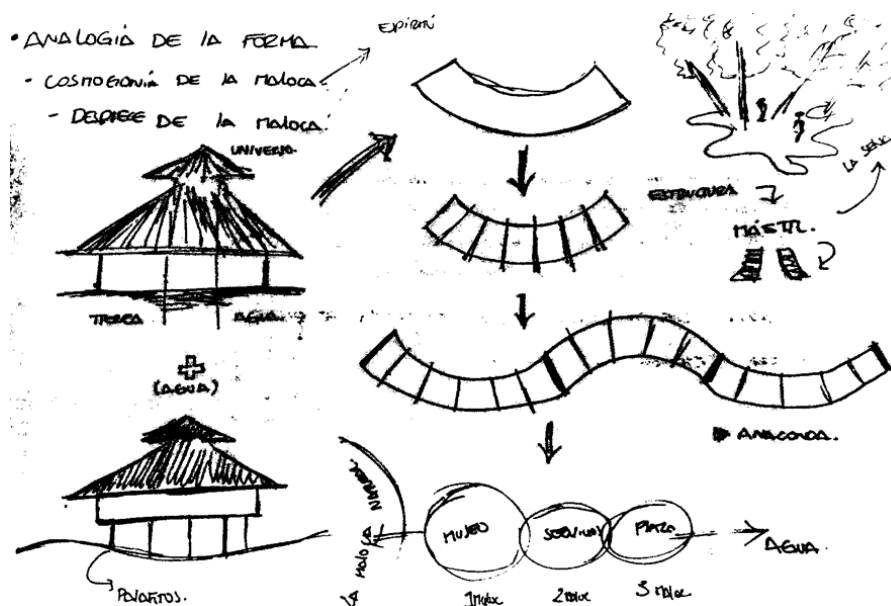 • ANALOGIA DE LA FORMA
- COSMOGONIA DE LA MALOCA
- DESPIECE DE LA MALOCA
UNIVERSO
TIERRA
AGUA
(AGUA)
PALAFITOS.
ESTRUCTURA
MÁSTIL.
ANACONDA.
LA MALOCA
MUSEO
PLAZA
AGUA.
1 Maloc
2 Maloc
3 Maloc